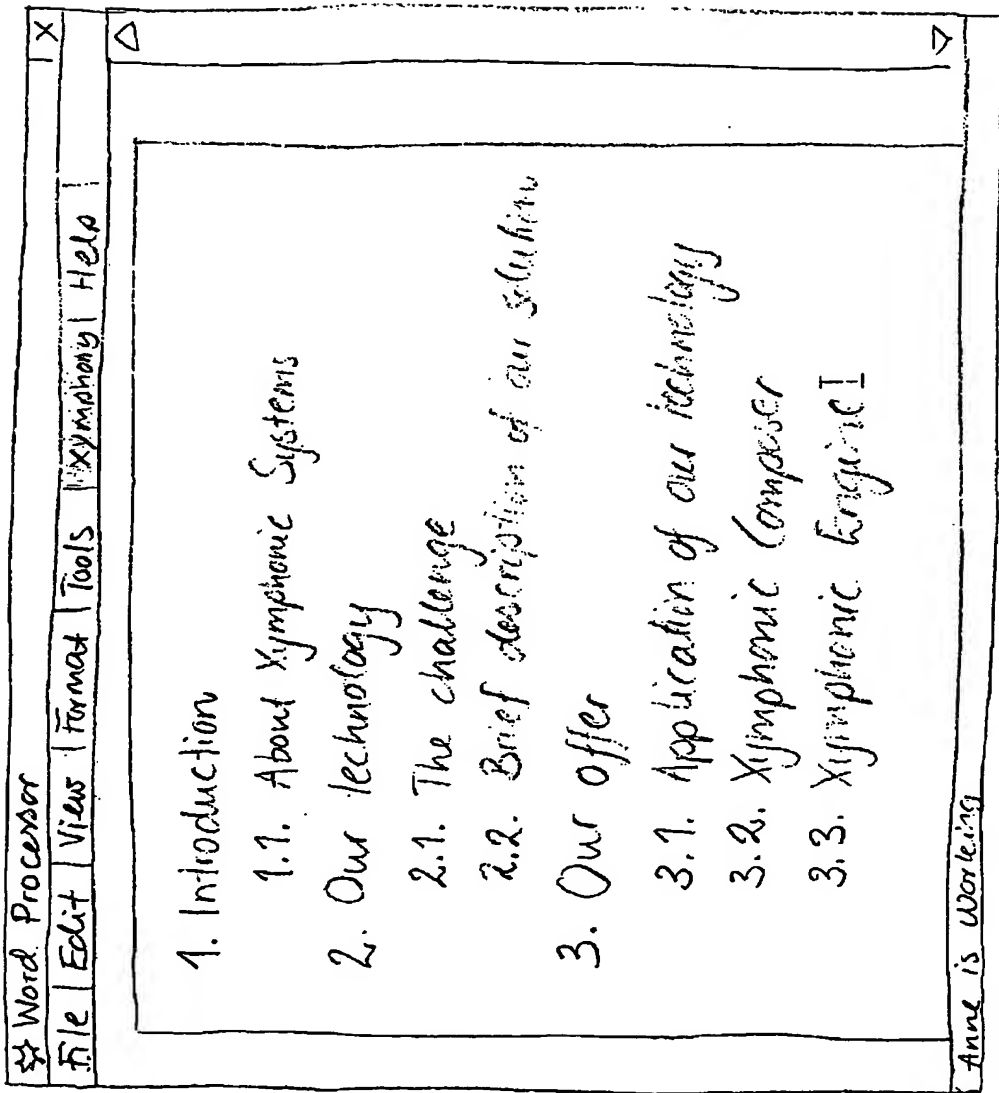 Word Processor X
File | Edit | View | Format | Tools | Xymphony | Help |
1. Introduction
1.1. About Xymphonic Systems
2. Our technology
2.1. The challenge
2.2. Brief description of our solution
3. Our offer
3.1. Application of our technology
3.2. Xymphonic Composer
3.3. Xymphonic Engine
Anne is working